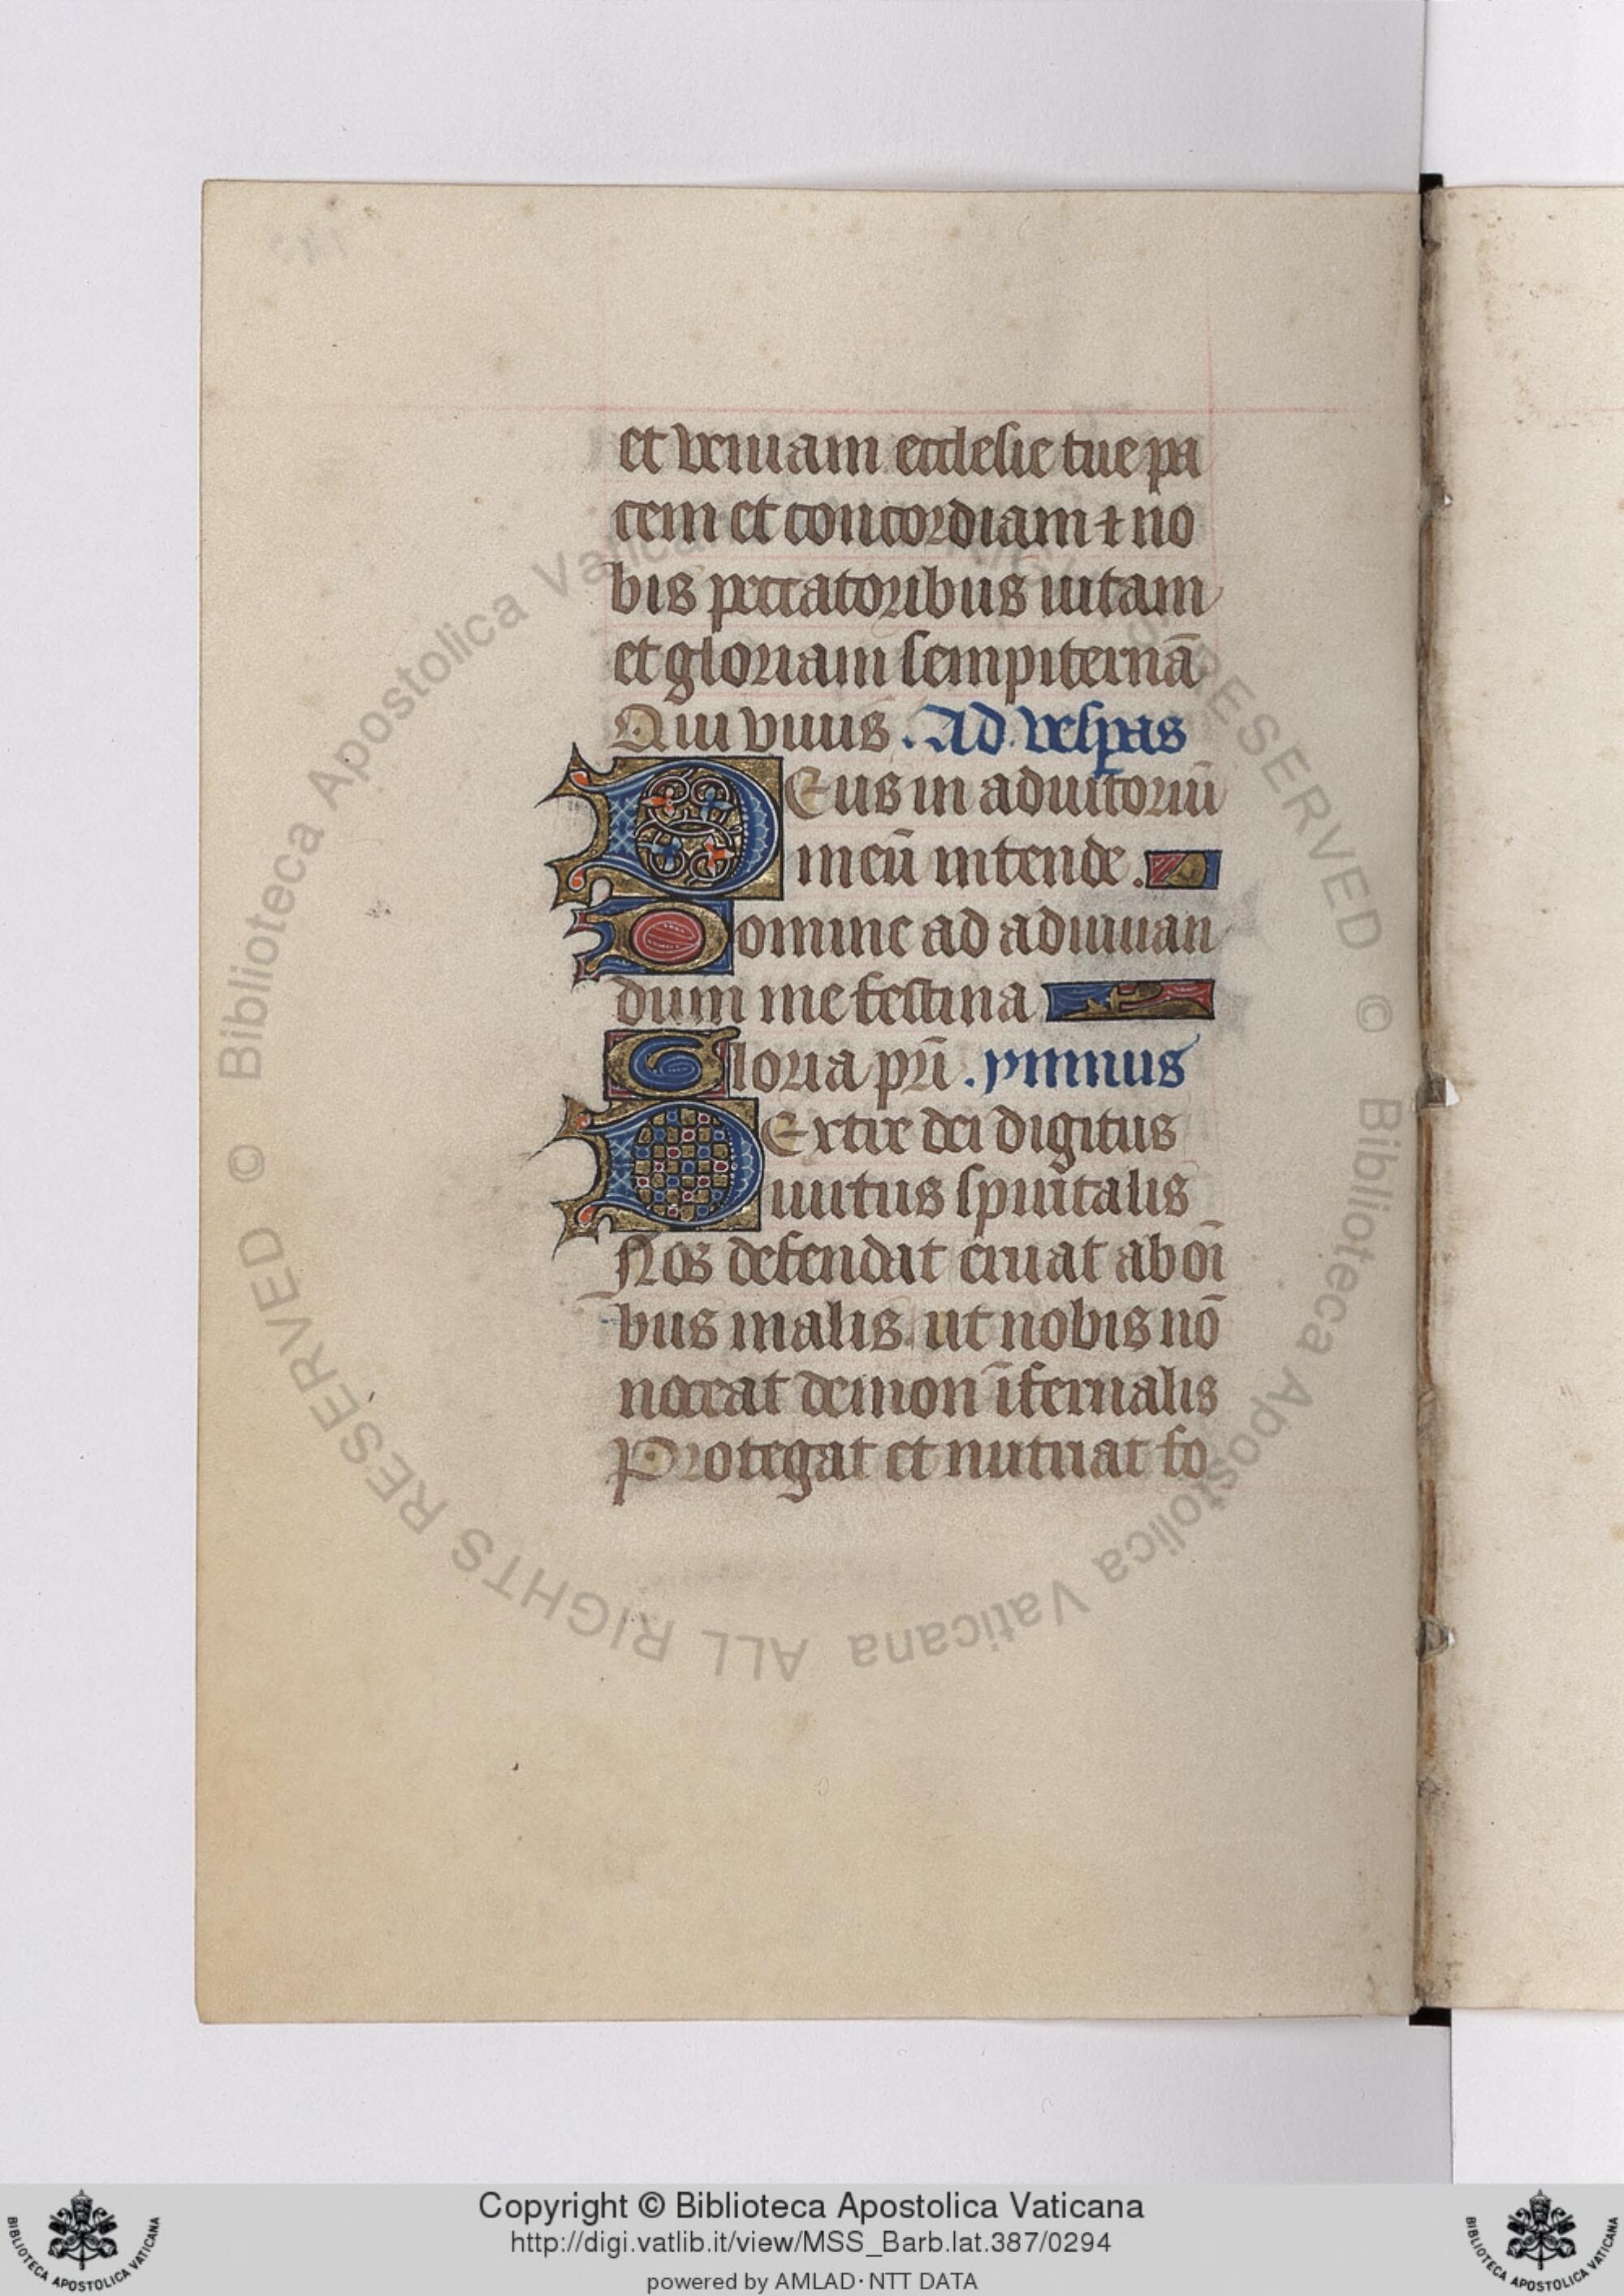 et veniam ecclesie tue pa
cem et concordiam ⁊ no
bis peccatoribus uitam
et gloriam sempiternā
Qui viuis. Ad vesꝑas
DEus in adiutoriū
meū intende.
Domine ad adiuuan
dum me festina
Gloria pr̄i. ymnus
DExtre dei digitus
uirtus spiritalis
Nos defendat eruat ab oī
bus malis. ut nobis nō
noceat demon īfernalis
Protegat et nutriat fo
© Biblioteca Apostolica Vaticana ALL RIGHTS RESERVED
© Biblioteca Apostolica Vaticana ALL RIGHTS RESERVED
Copyright © Biblioteca Apostolica Vaticana
http://digi.vatlib.it/view/MSS_Barb.lat.387/0294
powered by AMLAD·NTT DATA
BIBLIOTECA APOSTOLICA VATICANA
BIBLIOTECA APOSTOLICA VATICANA